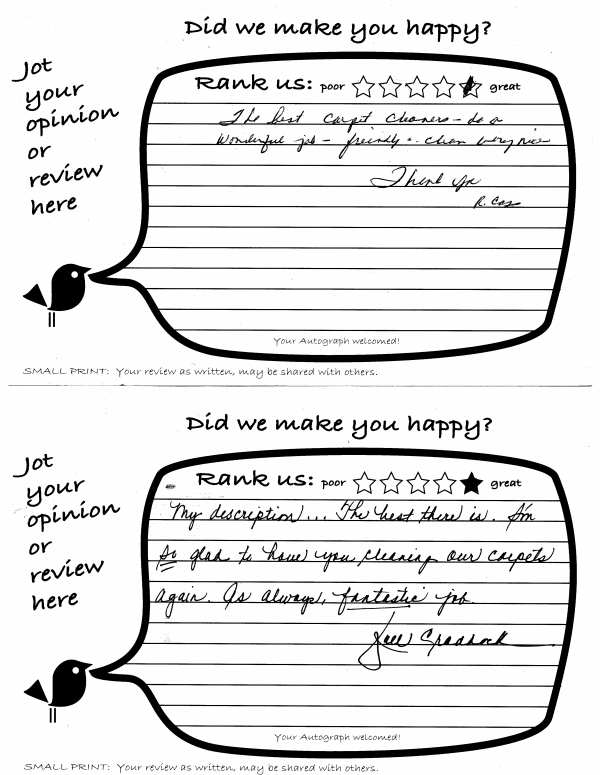 Did we make you happy?
Jot
your
opinion
or
review
here
Rank us: poor great
The best carpet cleaners - do a
wonderful job - freindly & clean very nice
Thank you
R. Cas
Your Autograph welcomed!
SMALL PRINT: Your review as written, may be shared with others.
Did we make you happy?
Jot
your
opinion
or
review
here
Rank us: poor great
My description... The best there is. I'm
so glad to have you cleaning our carpets
again. As always, fantastic job.
Craddock
Your Autograph welcomed!
SMALL PRINT: Your review as written, may be shared with others.